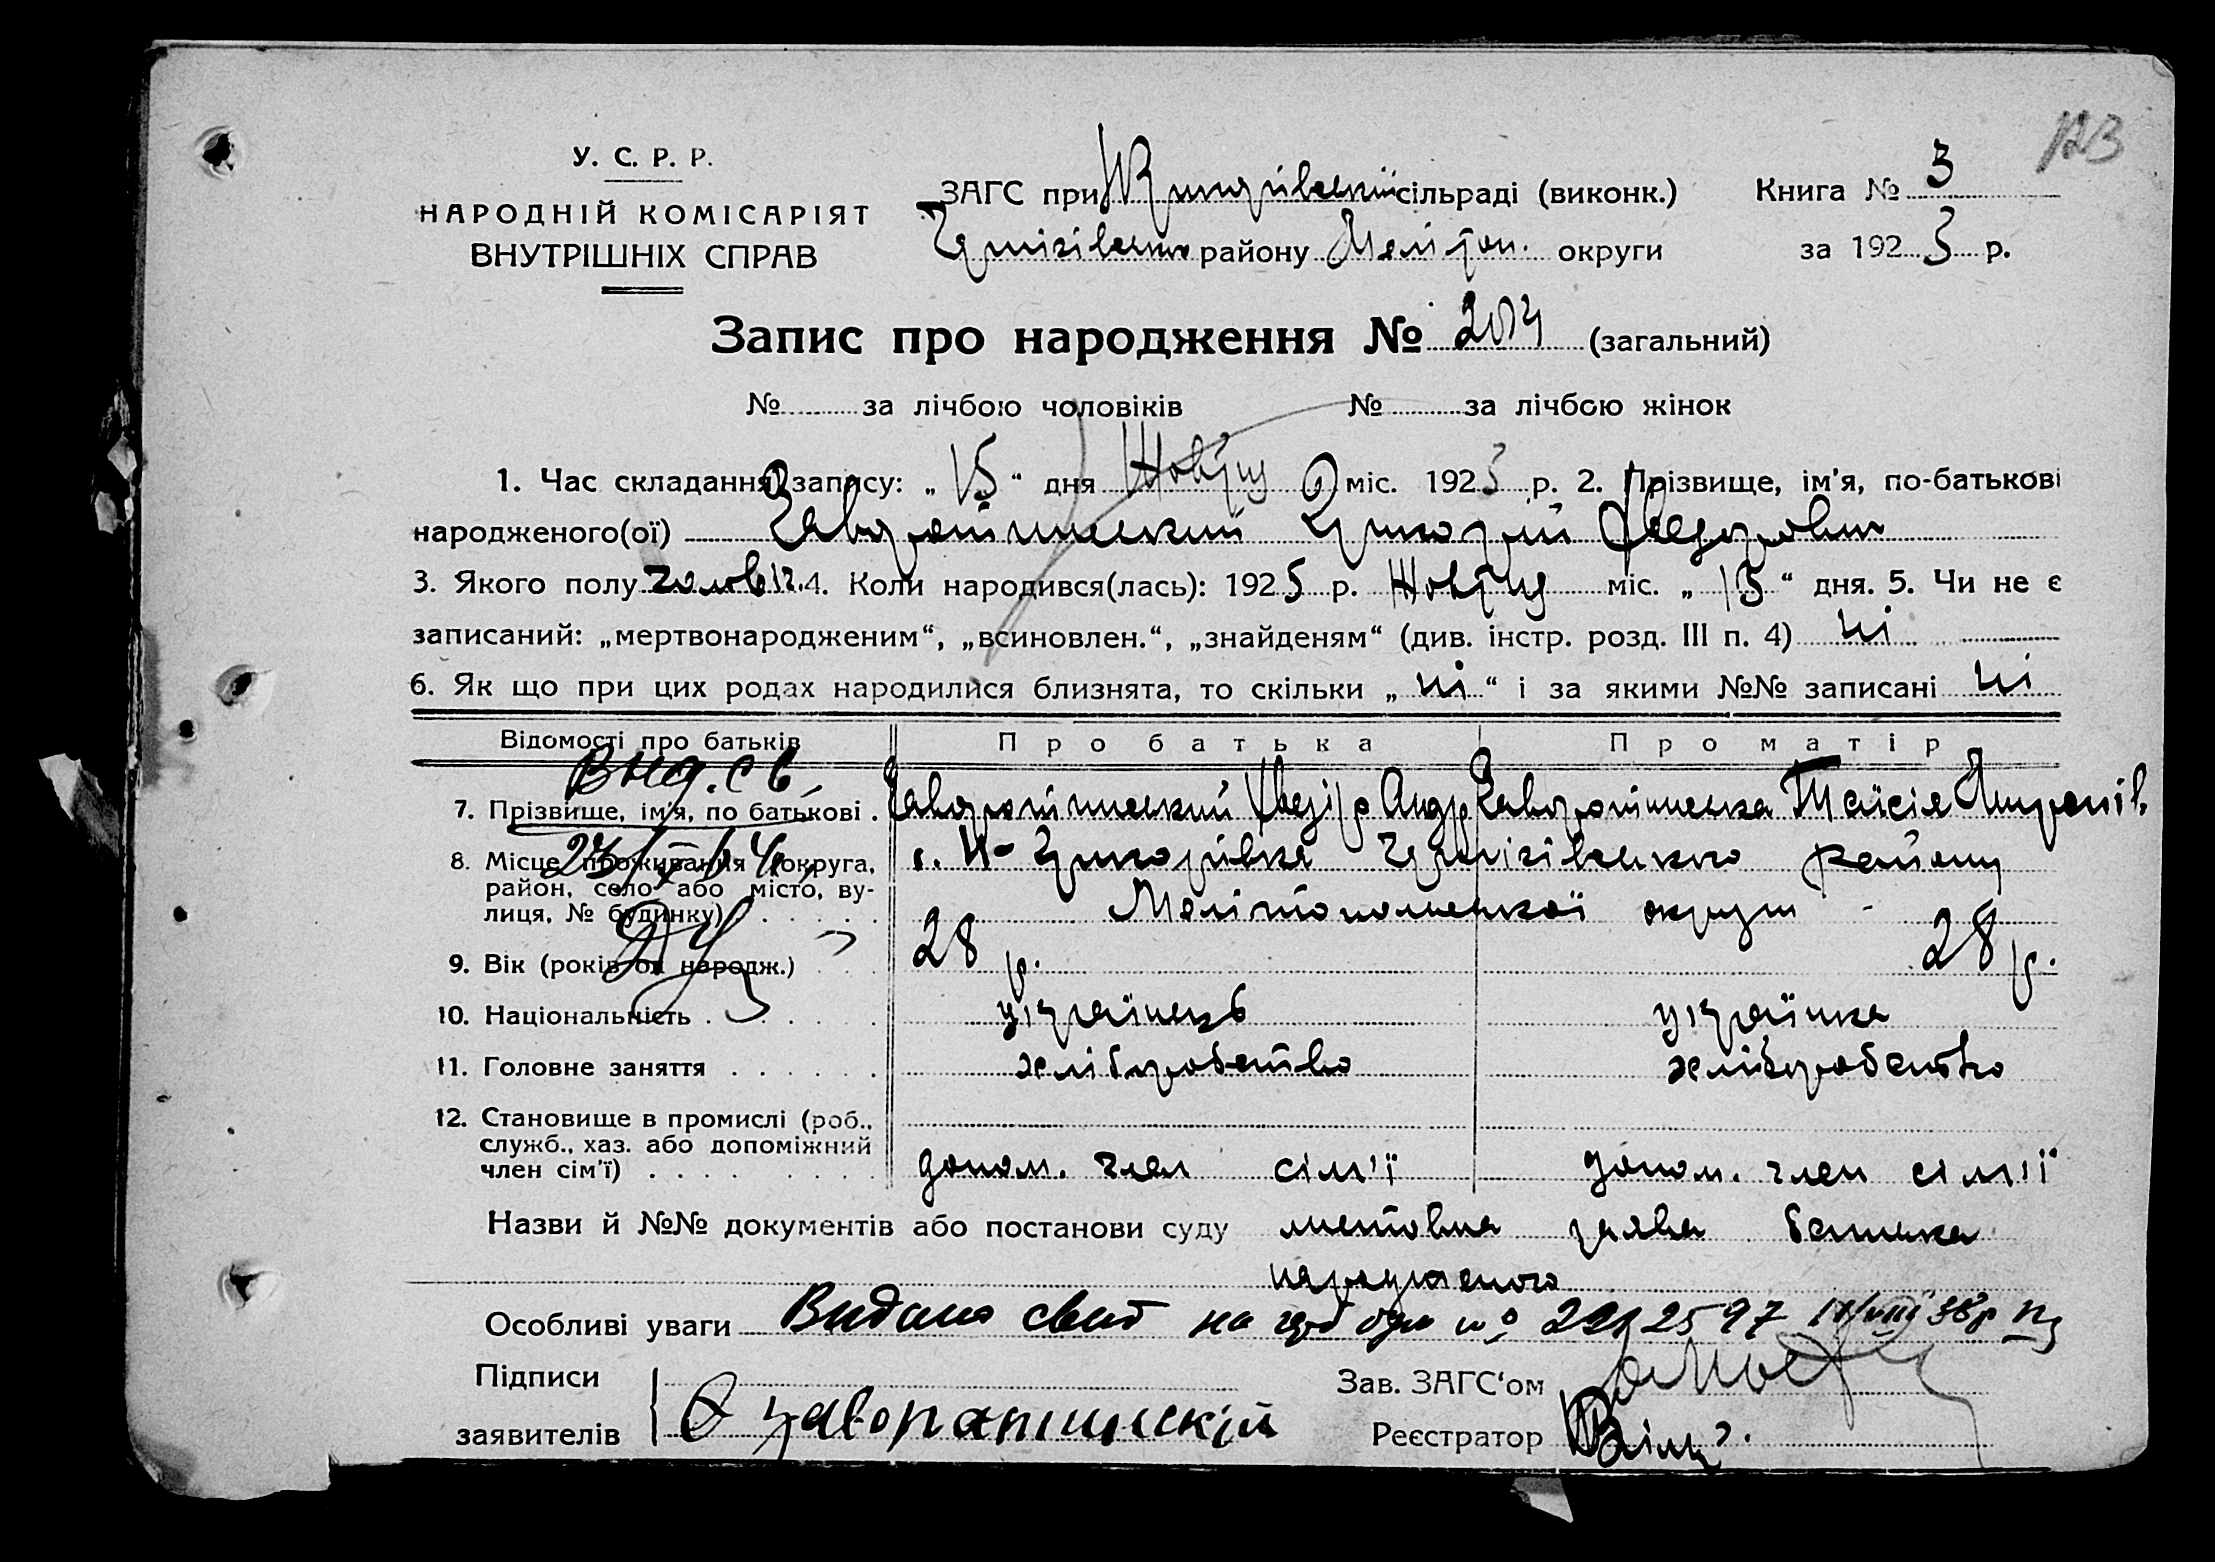 123
У. С. Р. Р.
НАРОДНІЙ КОМІСАРІЯТ
ВНУТРІШНІХ СПРАВ
ЗАГС при сільраді (виконк.)
Книга № 3
району Мелітоп. округи
за 1925 р.
Запис про народження № (загальний)
№ за лічбою чоловіків № за лічбою жінок
1. Час складання запису: „ 15 “ дня Жовтня міс. 1925 р. 2. Прізвище, ім'я, по-батькові
народженого(ої) Заворотинський Григорій Федорович
3. Якого полу чолов. 4. Коли народився(лась): 1925 р. Жовтня міс. „ 15 “ дня. 5. Чи не є
записаний: „мертвонародженим“, „всиновлен.“, „знайденям“ (див. інстр. розд. III п. 4) ні
6. Як що при цих родах народилися близнята, то скільки „ ні “ і за якими №№ записані ні
Відомості про батьків Про батька Про матір
7. Прізвище, ім'я, по батькові . Заворотинський Федір Андр Заворотинська Таїсія
8. Місце проживання (округа, район, село або місто, вулиця, № будинку) . . . с. Н-Григорівка Чернігівського району
Мелітопольської округи
9. Вік (років од народж.) . . 28 р. 28 р.
10. Національність . . . . українець українка
11. Головне заняття . . . . . . хліборобство хліборобство
12. Становище в промислі (роб., служб., хаз. або допоміжний член сім'ї) . . . . допом. член сім'ї допом. член сім'ї
Назви й №№ документів або постанови суду заява батька
Особливі уваги Видано на
Підписи
заявителів
Зав. ЗАГС'ом
Реєстратор